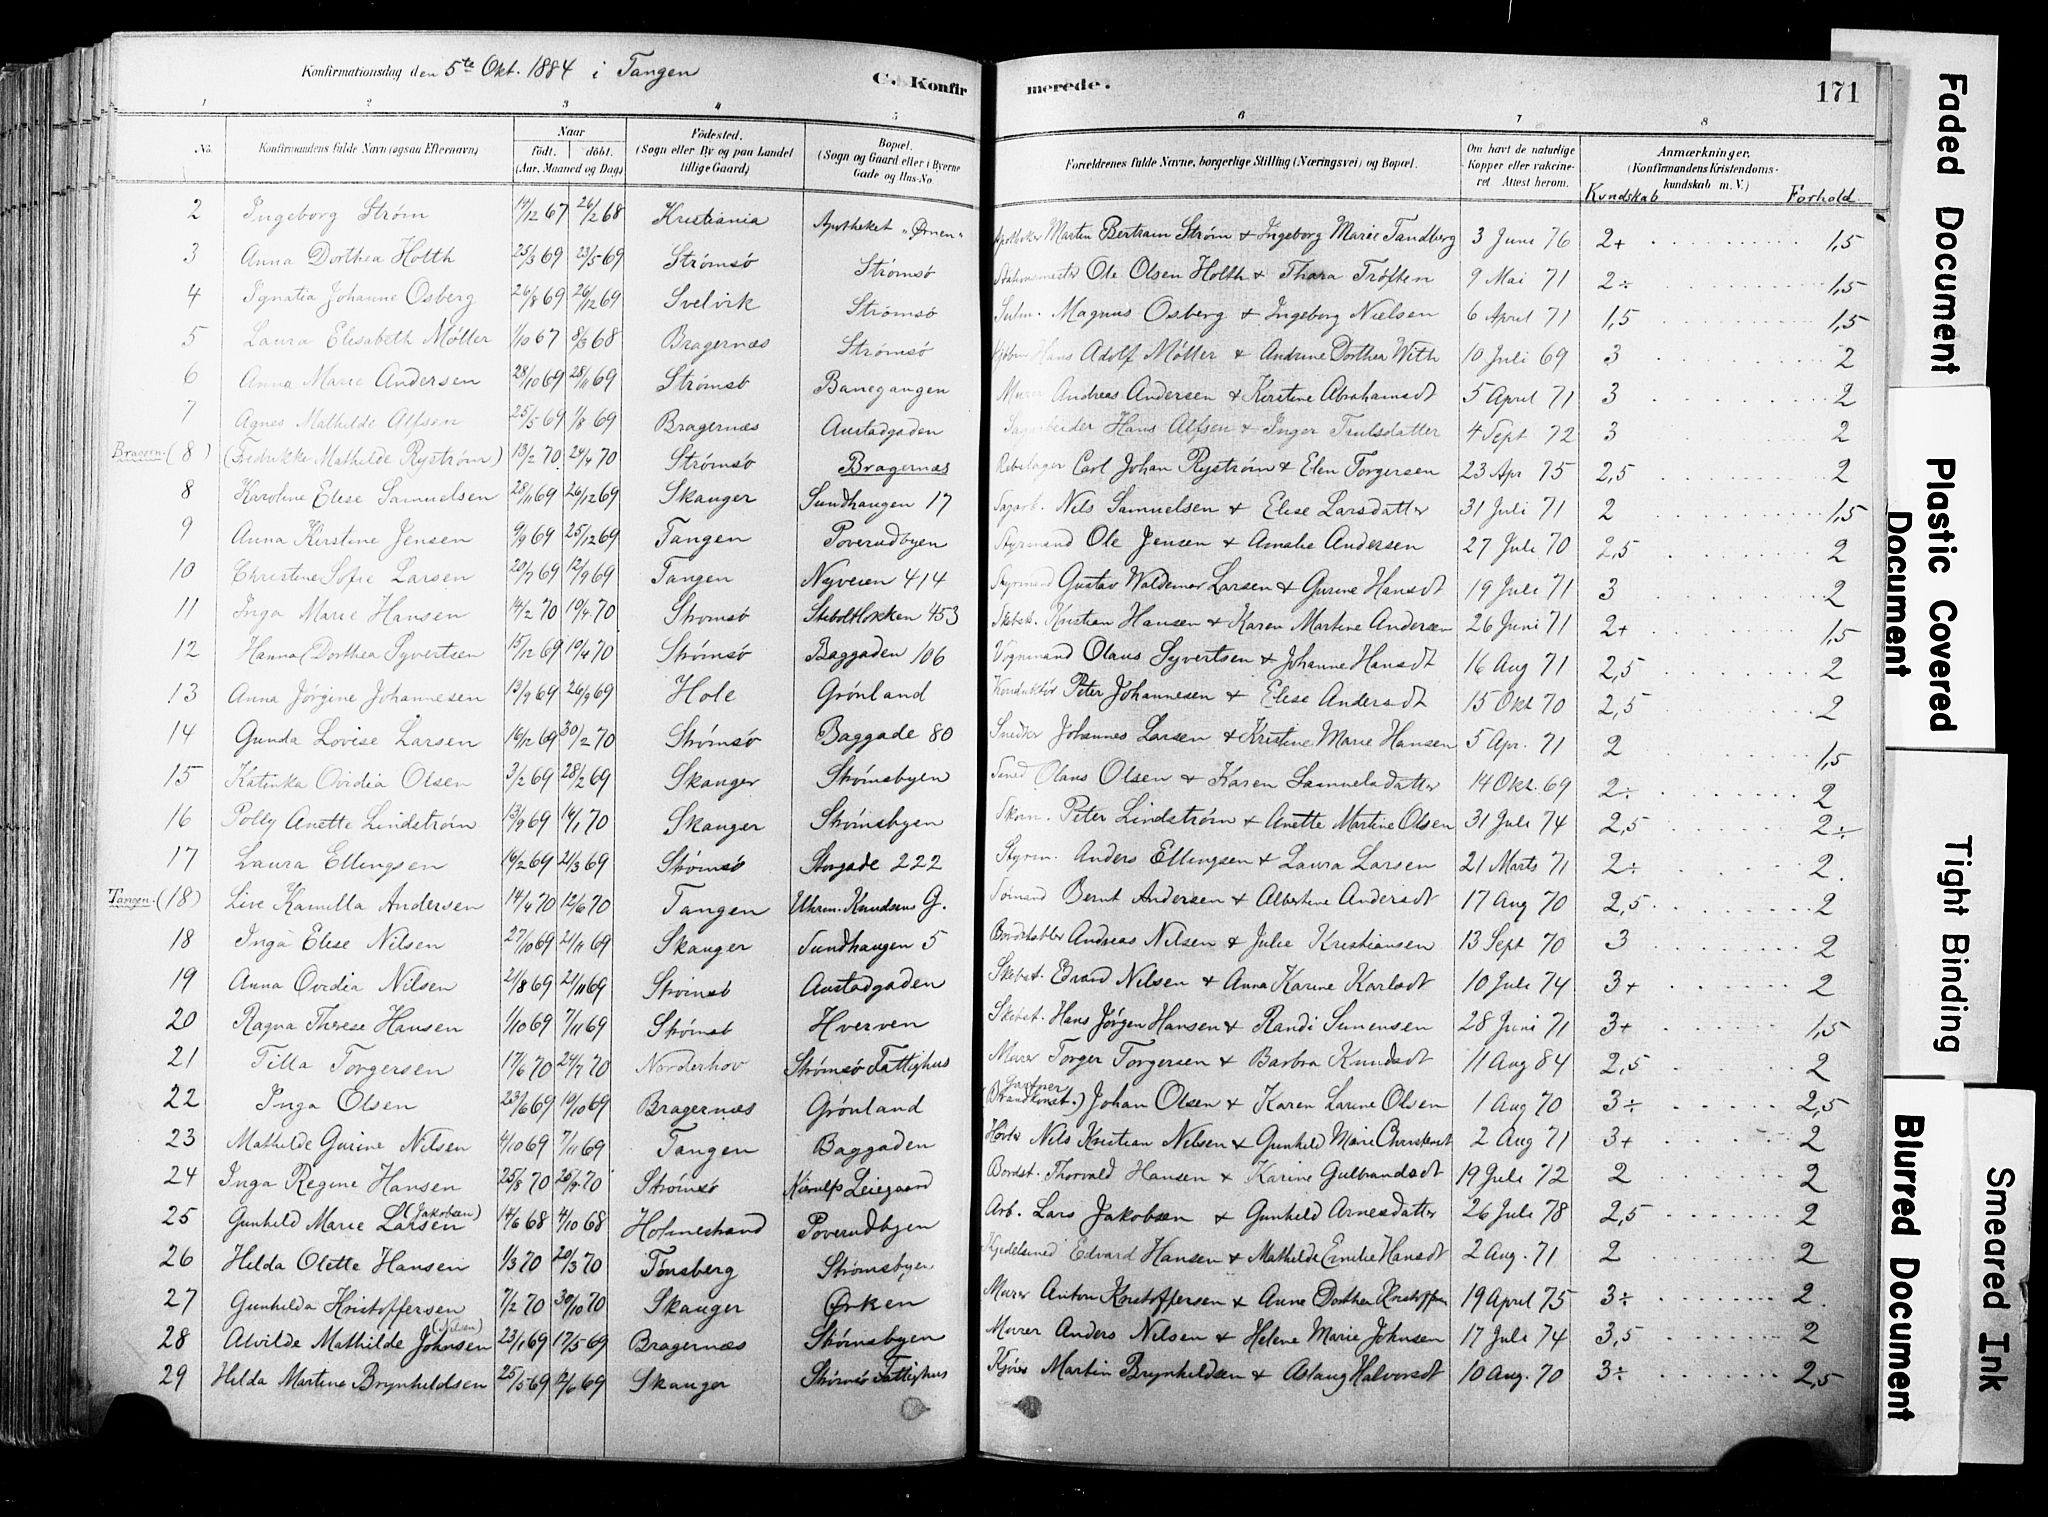 Konfirmationsdag den 5te Okt. 1884 i Tangen
C. Konfirmerede. 171
1 2 3 4 5 6 7 8
No. Konfirmandens fulde Navn (ogsaa Efternavn) Naar født. døbt. (Aar, Maaned og Dag) Fødested. (Sogn eller By og paa Landet tillige Gaard) Bopæl. (Sogn og Gaard eller i Byerne Gade og Hus-No Forældrenes fulde Navne, borgerlige Stilling (Næringsvei) og Bopæl. Om havt de naturlige Kopper eller vakcineret. Attest herom. Anmærkninger. (Konfirmandens Kristendomskundskab m. V.) Kundskab Forhold
2 Ingeborg Strøm 14/12 67 26/2 68 Kristiania Apotheket "Ørnen" Apotheker Martin Bertram Strøm + Ingeborg Marie Tandberg 3 Juni 76 2+ 1,5
3 Anna Dorthea Holth 25/3 69 23/5 69 Strømsø Strømsø Ole Olsen Holth + Thora Trøften 9 Mai 71 2÷ 1,5
4 Ignatia Johanne Osberg 26/8 69 26/12 69 Svelvik Strømsø Magnus Osberg + Ingeborg Nielsen 6 April 71 1,5 1,5
5 Laura Elisabeth Møller 1/10 67 8/3 68 Bragernæs Strømsø Hans Adolf Møller + Andrine Dorthea With 10 Juli 69 3 2
6 Anna Marie Andersen 28/10 69 28/11 69 Strømsø Banegangen Murer Andreas Andersen + Kirstine Abrahamsdt 5 April 71 3 2
7 Agnes Mathilde Alfsen 25/5 69 1/8 69 Bragernæs Austadgaden Sagarbeider Hans Alfsen + Inger Trulsdatter 4 Sept 72 3 2
Bragern. (8) (Fredrikke Mathilde Rystrøm) 13/2 70. 24/4 70 Strømsø Bragernæs Rebslager Carl Johan Rystrøm + Elen Torgersen 23 Apr 75 2,5 2
8 Karoline Elise Samuelsen 28/11 69 26/12 69 Skauger Sundhaugen 17 Sagarb. Nils Samuelsen + Elise Larsdatter 31 Juli 71 2 1,5
9 Anna Kirstine Jensen 9/9 69 25/12 69 Tangen Poverudbyen Styrmand Ole Jensen + Amalie Andersen 27 Juli 70 2,5 2
10 Christine Sofie Larsen 20/7 69 12/9 69 Tangen Nyveien 414 Styrmand Gustav Waldemar Larsen + Gurine Hansdt 19 Juli 71 3 2
11 Inga Marie Hansen 14/2 70 10/4 70 Strømsø Stiboltløkken 453 Skibst. Kristian Hansen + Karen Martine Andersen 26 Juni 71 2+ 1,5
12 Hanna Dorthea Syvertsen 15/12 69 10/4 70 Strømsø Baggaden 106 Vognmand Olaus Syvertsen + Johanne Hansdt 16 Aug 71 2,5 2
13 Anna Jørgine Johannesen 13/9 69 26/9 69 Hole Grønland Konduktør Peter Johannesen + Elise Andersdt 15 Okt 70 2,5 2
14 Gunda Lovise Larsen 16/12 69 30/2 70 Strømsø Baggade 80 Snedker Johannes Larsen + Kristine Marie Hansen 5 Apr. 71 2 1,5
15 Katinka Ovidia Olsen 3/2 69 28/2 69 Skauger Strømsbyen Olaus Olsen + Karen Samuelsdatter 14 Okt. 69 2÷ 2
16 Polly Anette Lindstrøm 13/9 69 14/1 70 Skauger Strømsbyen Skom. Peter Lindstrøm + Anette Martine Olsen 31 Juli 74 2,5 2÷
17 Laura Ellingsen 16/2 69 21/3 69 Strømsø Storgade 222 Styrm. Anders Ellingsen + Laura Larsen 21 Marts 71 2÷ 2.
Tangen. (18) Live Kamilla Andersen 14/4 70 12/6 70 Tangen Uhrm. Knudsens G. Sømand Bernt Andersen + Albertine Andersdt 17 Aug 70 2,5 2
18 Inga Elise Nilsen 27/10 69 21/11 69 Skauger Sundhaugen 5 Bordstabler Andreas Nilsen + Julie Kristiansen 13 Sept 70 3 2
19 Anna Ovidia Nilsen 21/8 69 21/11 69 Strømsø Austadgaden Skibst. Edvard Nilsen + Anna Karine Karlsdt 10 Juli 74 3+ 2
20 Ragna Therese Hansen 1/10 69 7/11 69 Strømsø Hverven Skibst. Hans Jørgen Hansen + Randi Simensen 28 Juni 71 3+ 1,5
21 Tilla Torgersen 17/6 70 24/7 70 Norderhov Strømsø Fattighus Murer Torger Torgersen + Barbra Knudsdt 11 Aug 84 2,5 2
22 Inga Olsen 23/6 69 10/10 69 Bragernæs Grønland Gartner (Brandkonst.) Johan Olsen + Karen Larine Olsen 1 Aug 70 3÷ 2,5
23 Mathilde Gurine Nilsen 4/10 69 7/11 69 Tangen Baggaden Nils Kristian Nilsen + Gunhild Marie 2 Aug 71 3+ 2
24 Inga Regine Hansen 25/8 70 70 Strømsø Leiegaard Bordst. Thorvald Hansen + Karine Gulbrandsdt 19 Juli 72 2 2
25 Gunhild Marie Larsen (Jakobsen) 14/6 68 4/10 68 Holmestrand Poverudbyen Arb. Lars Jakobsen + Gunhild Arnesdatter 26 Juli 78 2,5 2
26 Hilda Olette Hansen 1/3 70 20/3 70 Tønsberg Strømsbyen Kjedelsmed Edvard Hansen + Mathilde Emilie Hansdt 2 Aug. 71 2 2
27 Gunhilda Kristoffersen 7/2 70 30/10 70 Skauger Ørken Murer Anton Kristoffersen + Anne Dorthea Kristoffers 19 April 75 3÷ 2.
28 Alvilde Mathilde Johnsen (Nilsen) 23/1 69 17/5 69 Bragernæs Strømsbyen Murer Anders Nilsen + Helene Marie Johnsen 17 Juli 74 3,5 2
29 Hilda Martine Brynhildsen 25/5 69 2/6 69 Skauger Strømsø Fattighus Kjører Martin Brynhildsen + Aslaug Halvorsdt 10 Aug. 70 3÷ 2,5
Faded Document
Plastic Covered Document
Tight Binding
Blurred Document
Smeared Ink